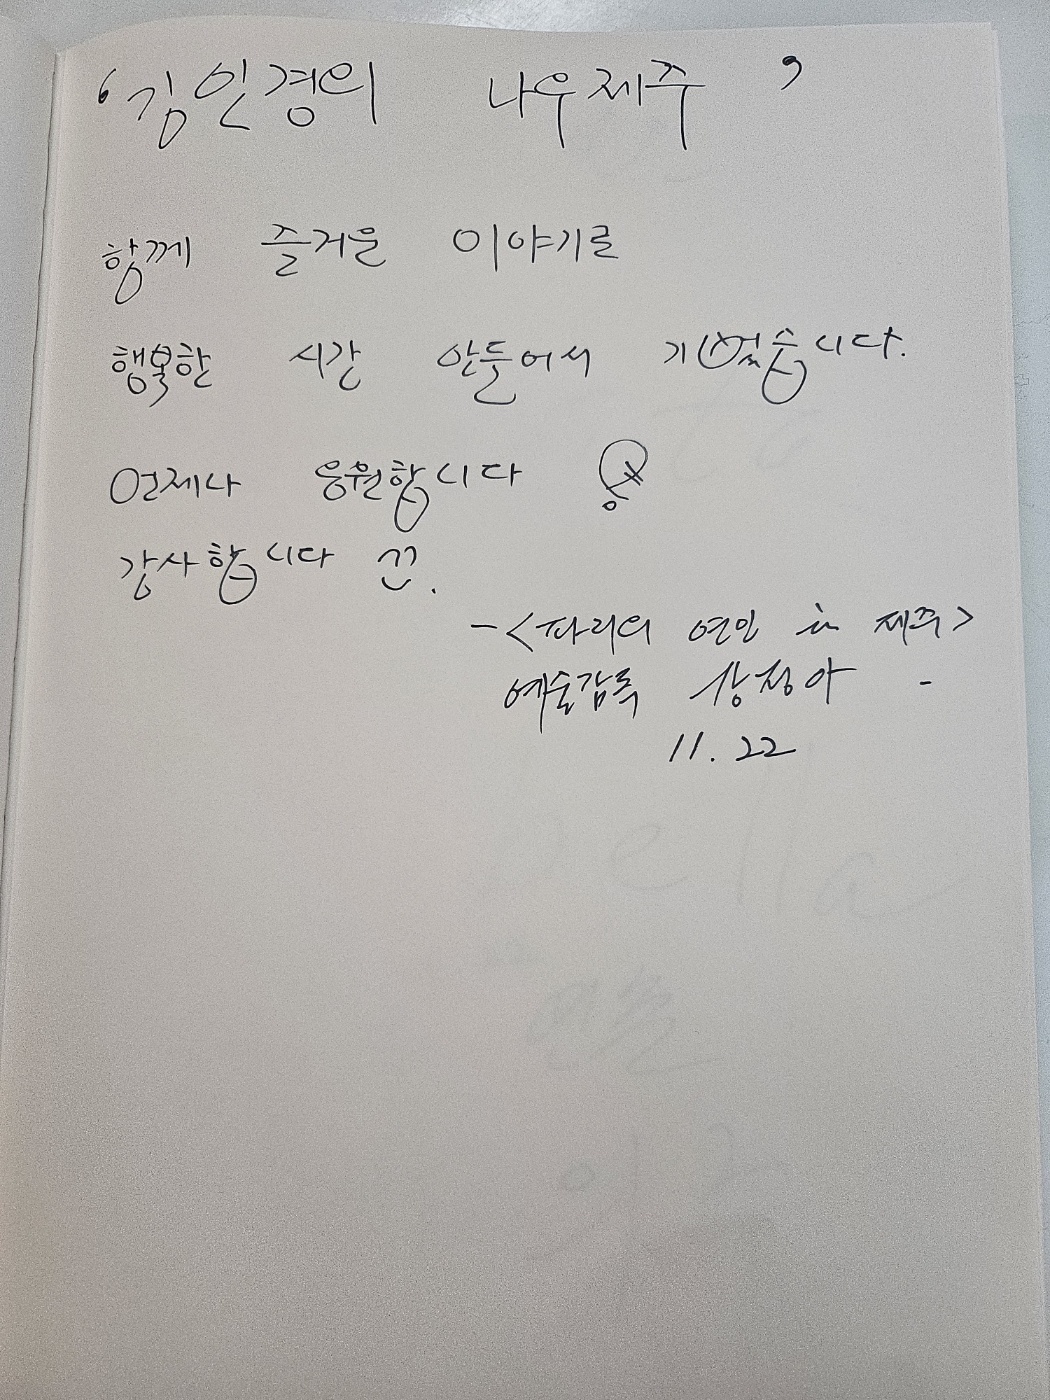 ‘김인경의 나우제주’
함께 즐거운 이야기로
행복한 시간 만들어서 기뻤습니다.
언제나 응원합니다
감사합니다
-<파리의 연인 in 제주>
예술감독 정아 -
11.22